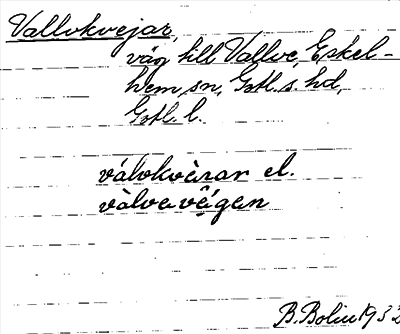 Vallvkvejar,
väg till Vallve, Eskel-
hem sn, Gotl. s. hd,
Gotl. l.
válvkvὰrar el.
vàlvevê̜gen
B. Bolin 1932